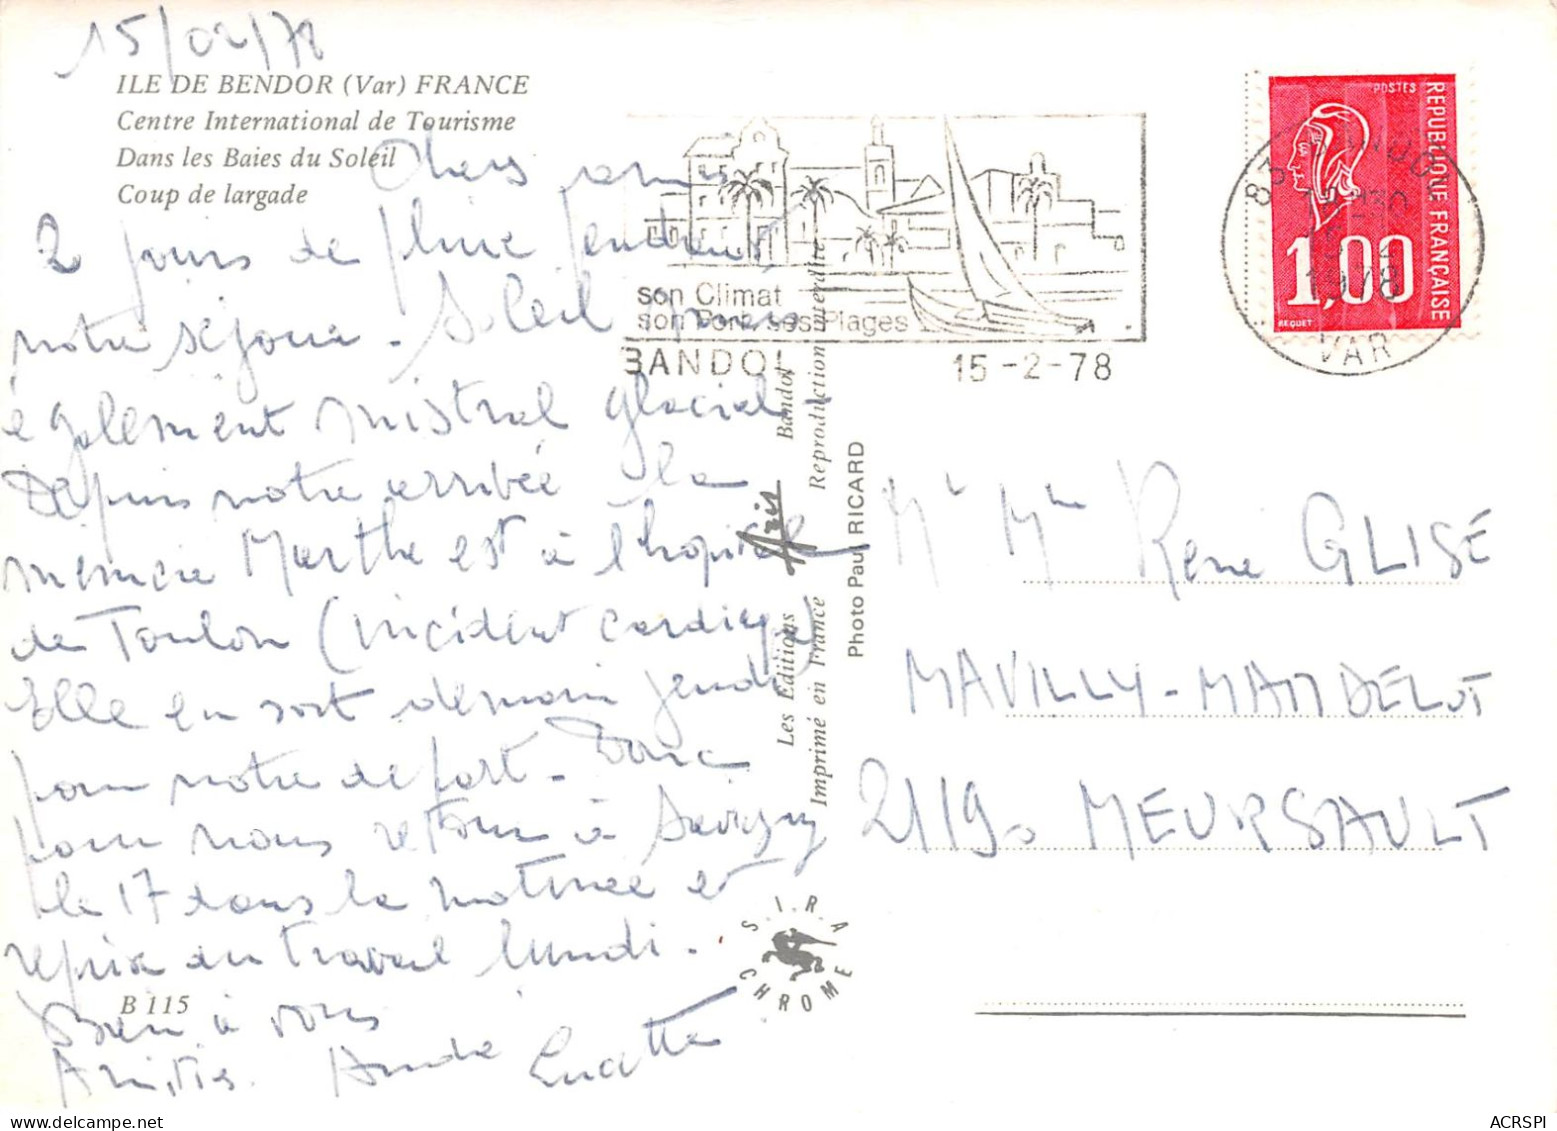 15/02/78
ILE DE BENDOR (Var) FRANCE
Centre International de Tourisme
Dans les Baies du Soleil
Coup de largade
Chers amis
2 jours de pluie pendant
notre séjour. Soleil mais
également mistral glacial.
Depuis notre arrivée la
mémère Marthe est à l'hôpital
de Toulon (incident cardiaque)
Elle en sort demain jeudi
pour notre départ. Donc
pour nous retour à Savigny
le 17 dans la matinée et
reprise du travail lundi.
Bien à vous
Amitiés. André
B 115
son Climat
son Port ses Plages
BANDOL
15 -2-78
POSTES
REPUBLIQUE FRANÇAISE
1,00
BEQUET
83
1978
VAR
Les Editions Aris Bandol
Imprimé en France Reproduction interdite
Photo Paul RICARD
S.I.R.A
CHROME
Mr Mme René GLISE
MAVILLY-MANDELOT
21190 MEURSAULT
ACRSPI